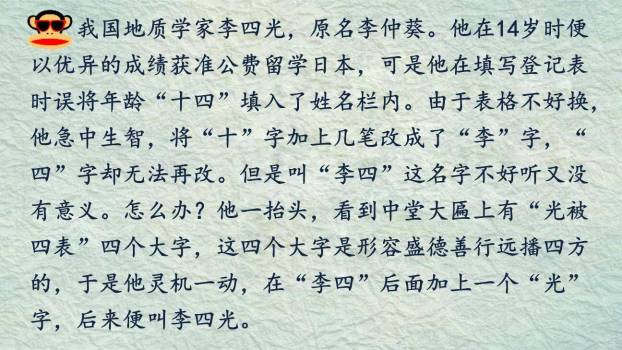 我国地质学家李四光，原名李仲葵。他在14岁时便
以优异的成绩获准公费留学日本，可是他在填写登记表
时误将年龄“十四”填入了姓名栏内。由于表格不好换，
他急中生智，将“十”字加上几笔改成了“李”字，“
四”字却无法再改。但是叫“李四”这名字不好听又没
有意义。怎么办？他一抬头，看到中堂大匾上有“光被
四表”四个大字，这四个大字是形容盛德善行远播四方
的，于是他灵机一动，在“李四”后面加上一个“光”
字，后来便叫李四光。